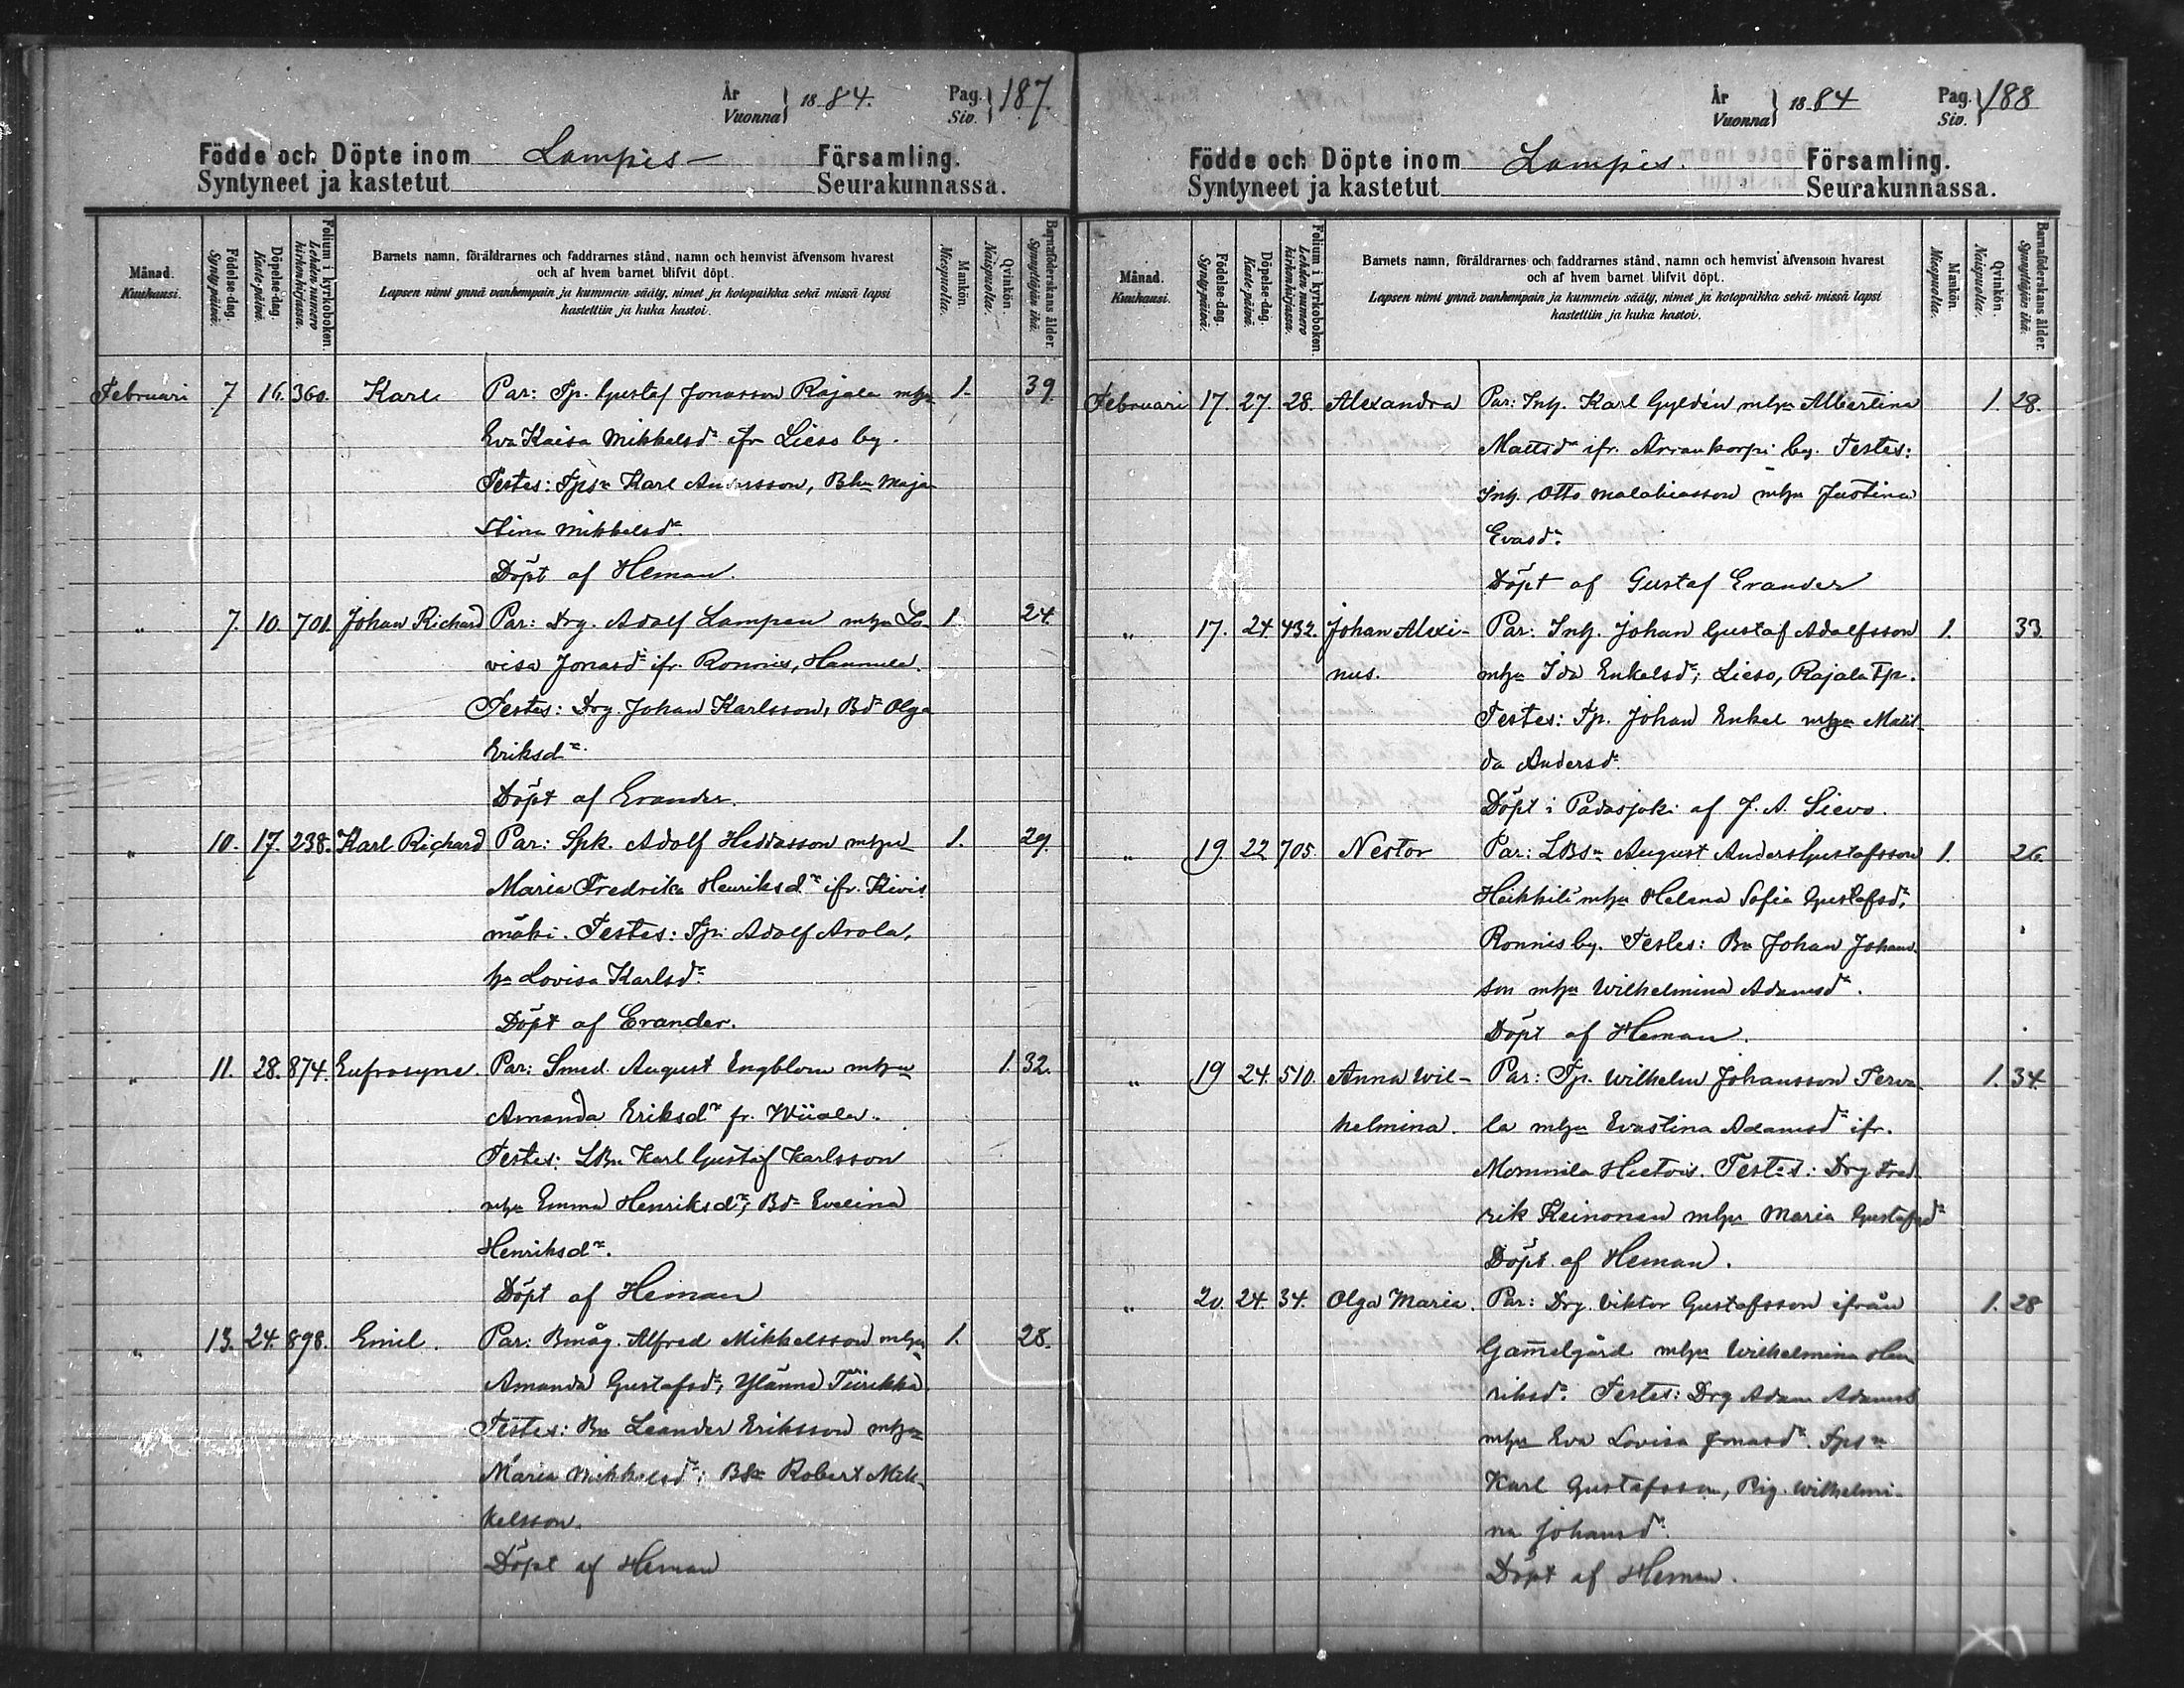 År
Vuonna } 1884. Pag.
Siv. } 187.
Födde och Döpte inom Lampis Församling.
Syntyneet ja kastetut Seurakunnassa.
Månad.
Kuukausi.
Födelse-dag.
Synty-päivä.
Döpelse-dag.
Kaste-päivä.
Folium i kyrkoboken.
Lehden numero
kirkonkirjassa.
Barnets namn, föräldrarnes och faddrarnes stånd, namn och hemvist äfvensom hvarest
och af hvem barnet blifvit döpt.
Lapsen nimi ynnä vanhempain ja kummein sääty, nimet ja kotopaikka sekä missä lapsi
kastettiin ja kuka kastoi.
Mankön.
Miespuolta.
Qvinkön.
Naispuolta.
Barnaföderskans ålder.
Synnyttäjän ikä.
Februari 7 16. 360. Karl Par: Tp. Gustaf Jonasson Rajala mhu 1. 39.
Eva Kaisa Mikkelsdr ifr Lieso by.
Testes: Tpsn Karl Andersson, Bhu Maja
Stina Mikkelsdr
Döpt af Heman.
" 7. 10. 701. Johan Richard Par: Drg. Adolf Lampen mhu Lo- 1. 24.
visa Jonasdr ifr. Ronnis, Hannula.
Testes: Drg. Johan Karlsson, Bdr Olga
Eriksdr
Döpt af Evander.
" 10. 17. 238. Karl Richard Par: Spk. Adolf Heddasson mhu 1. 29.
Maria Fredrika Henriksdr ifr. Kivis
mäki. Testes: Tp. Adolf Arola,
hu Lovisa Karlsdr
Döpt af Evander.
" 11. 28. 874. Eufrosyne. Par: Smed. August Engblom mhu 1. 32.
Amanda Eriksdr fr. Wiiala.
Testes: LBn Karl Gustaf Karlsson
mhu Emma Henriksdr; Bdr Evelina
Henriksdr.
Döpt af Heman
" 13. 24. 898. Emil. Par: Bmåg. Alfred Mikkelsson mhu 1. 28.
Amanda Gustafsdr, Ylänne Tiirikka.
Testes: Bn Leander Eriksson mhu
Maria Mikkelsdr; Bsn Robert Mik
kelsson.
Döpt af Heman
År
Vuonna } 1884 Pag.
Siv. } 188
Födde och Döpte inom Lampis. Församling.
Syntyneet ja kastetut Seurakunnassa.
Månad.
Kuukausi.
Födelse-dag.
Synty-päivä.
Döpelse-dag.
Kaste-päivä.
Folium i kyrkoboken.
Lehden numero
kirkonkirjassa.
Barnets namn, föräldrarnes och faddrarnes stånd, namn och hemvist äfvensom hvarest
och af hvem barnet blifvit döpt.
Lapsen nimi ynnä vanhempain ja kummein sääty, nimet ja kotopaikka sekä missä lapsi
kastettiin ja kuka kastoi.
Mankön.
Miespuolta.
Qvinkön.
Naispuolta.
Barnaföderskans ålder.
Synnyttäjän ikä.
Februari 17. 27. 28. Alexandra Par: Inh. Karl Gyldén mhu Albertina 1. 28.
Mattsdr ifr. Arrankorpi by. Testes:
Inh. Otto Malakiasson mhu Justina
Evasdr
Döpt af Gustaf Evander
" 17. 24. 432. Johan Alexi- Par: Inh. Johan Gustaf Adolfsson 1. 33
nus. mhu Ida Enkelsdr, Lieso, Rajala Tp.
Testes: Tp. Johan Enkel mhu Matil-
da Andersdr
Döpt i Padasjoki af J. A. Sievo.
" 19. 22. 705. Nestor Par: LBsn August Anders Gustafsson 1. 26.
Heikkilä mhu Helena Sofia Gustafsdr,
Ronnis by. Testes: Bn Johan Johans-
son mhu Wilhelmina Adamsdr.
Döpt af Heman.
" 19 24. 510. Anna Wil- Par: Tp. Wilhelm Johansson Terva- 1. 34
helmina. la mhu Evastina Adamsdr ifr.
Mommila Hietois. Testes: Drg Fred
rik Keinonen mhu Maria Gustafsdr
Döpt af Heman.
" 20. 24. 34. Olga Maria. Par: Drg. Viktor Gustafsson ifrån 1. 28
Gam̅elgård mhu Wilhelmina Hen
riksdr. Testes: Drg Adam Adamss
mhu Eva Lovisa Jonasdr. Tpsn
Karl Gustafsson, Pig. Wilhelmi-
na Johansdr
Döpt af Heman.